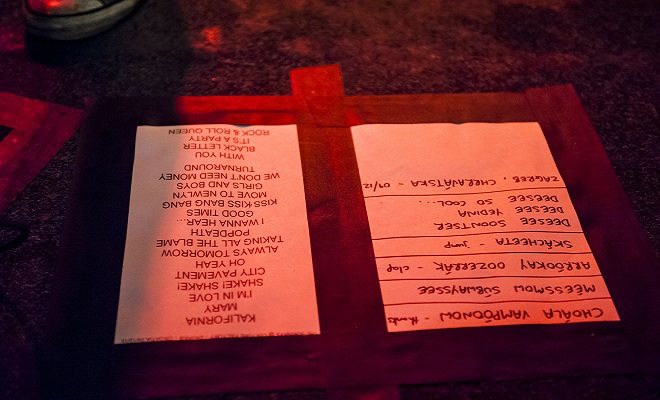 KALIFORNIA
MARY
I'M IN LOVE
SHAKE! SHAKE!
CITY PAVEMENT
OH YEAH
ALWAYS TOMORROW
TAKING ALL THE BLAME
POPDEATH
I WANNA HEAR...
GOOD TIMES
KISS KISS BANG BANG
MOVE TO NEWLYN
GIRLS AND BOYS
WE DON'T NEED MONEY
TURNAROUND
WITH YOU
BLACK LETTER
IT'S A PARTY
ROCK & ROLL QUEEN
CHOÁLA VAMPÓONOW - thanks
MÉESSMOW SÚBWAYSSEE
ARRÓOKAY OOZERRÁK - clap
SKÁCHEETA - jump
DEESEE SOONTSEE
DEESEE YEDINA
DEESEE SO COOL...
ZAGREB, CHERRAVÁTSKA - 09/12